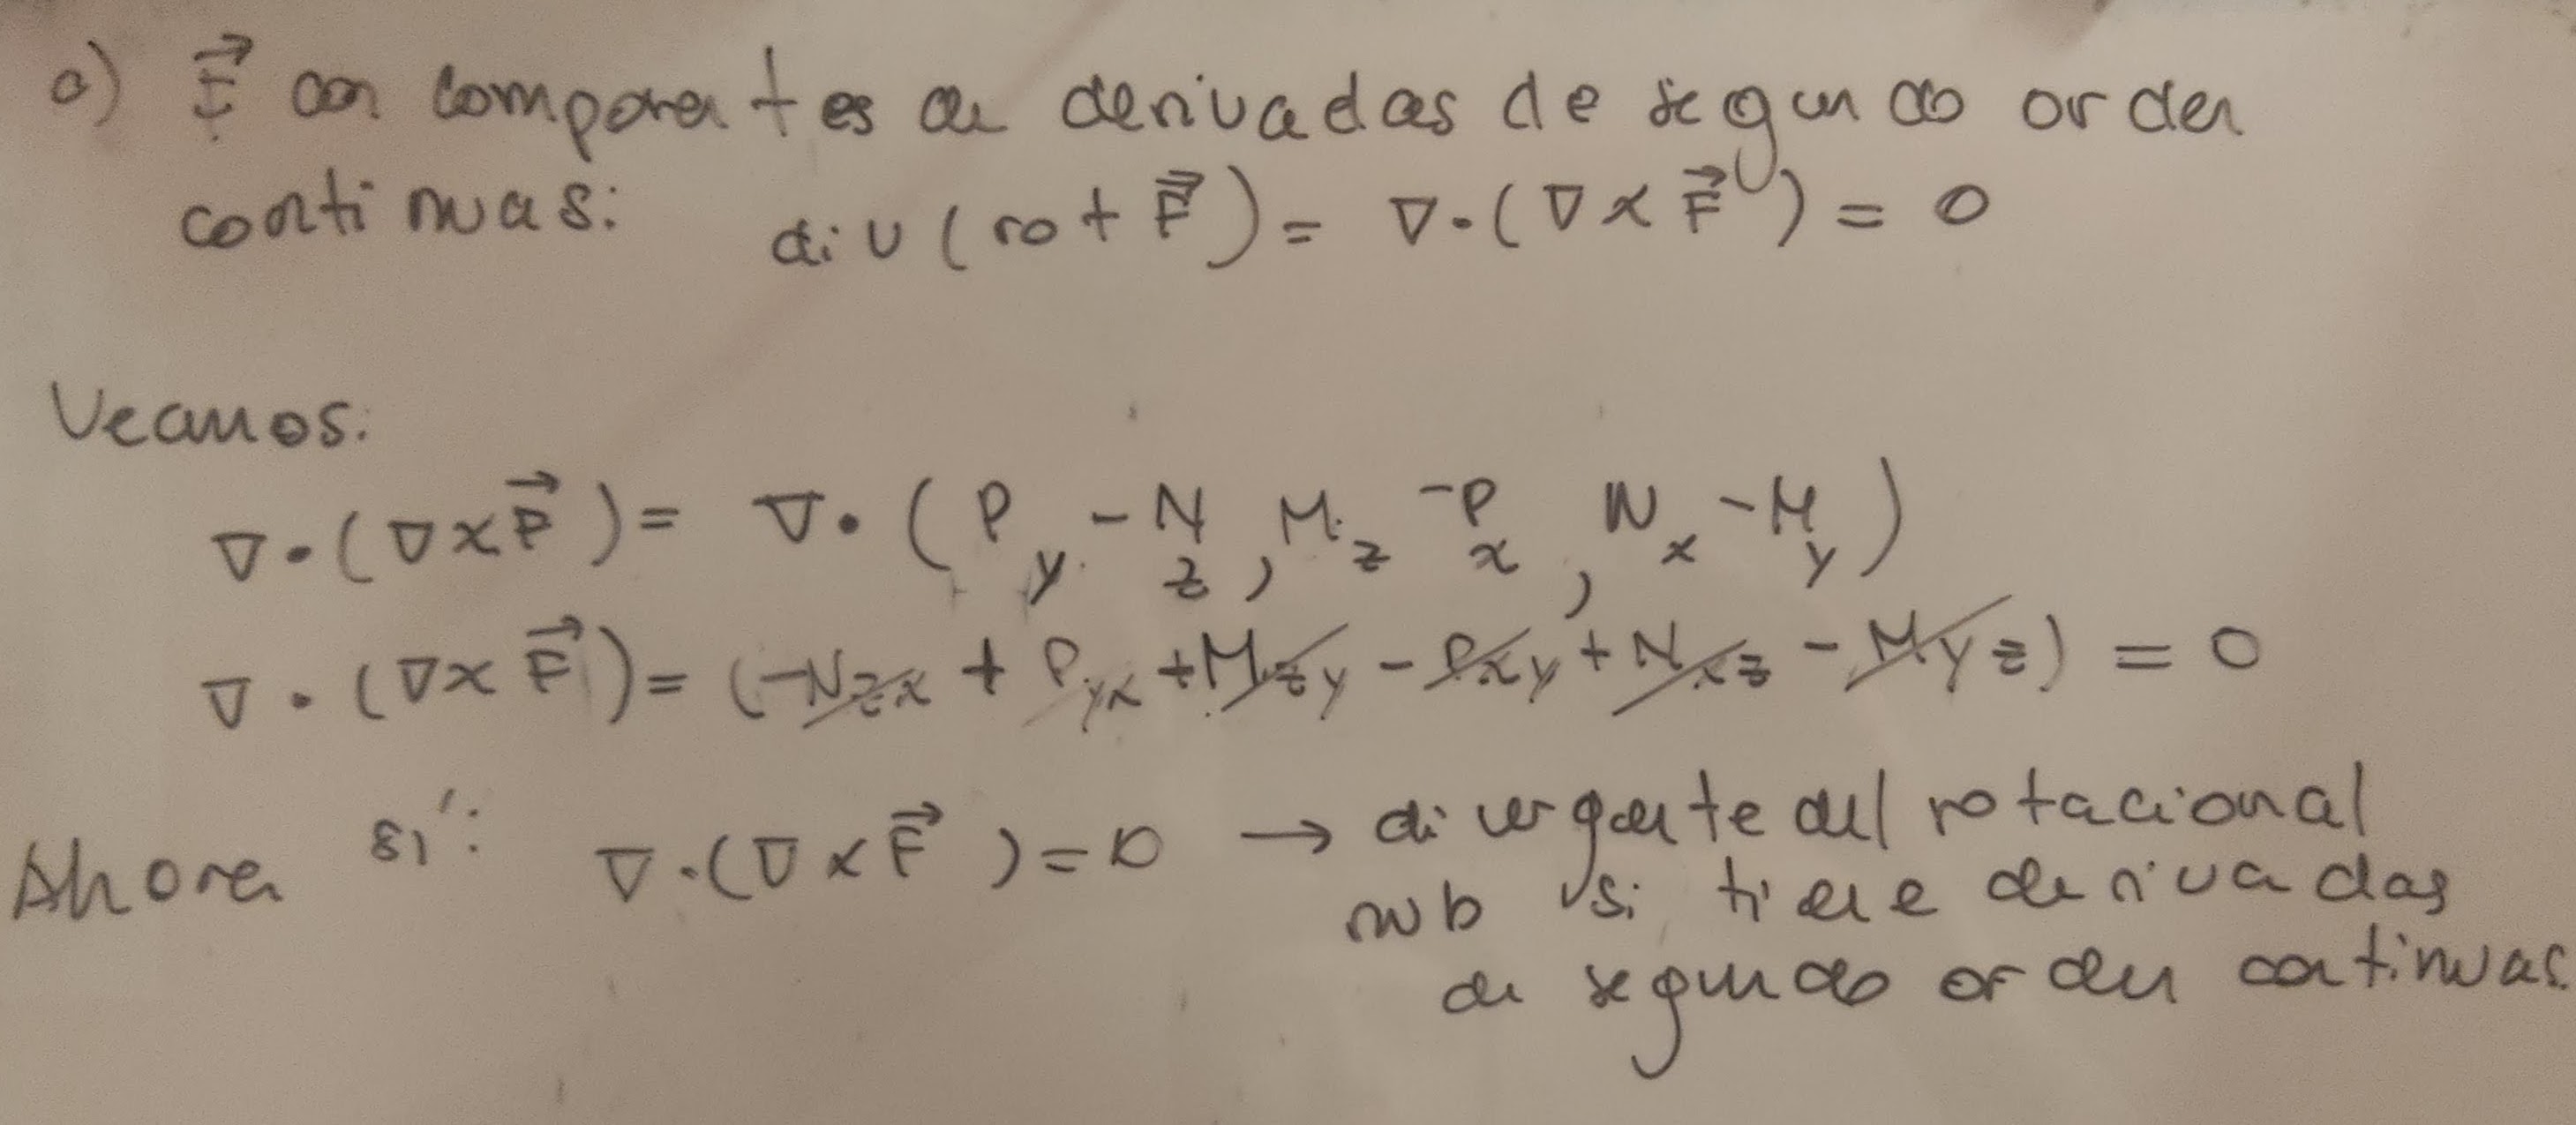 a) F⃗ con componentes de derivadas de segundo orden
continuas: div (rot F⃗) = ∇·(∇ x F⃗) = 0
Veamos:
∇·(∇x F⃗) = ∇·(P_y - N_z, M_z - P_x, N_x - M_y)
∇·(∇x F⃗) = (-N_zx + P_yx + M_zy - P_xy + N_xz - M_yz) = 0
Ahora sí: ∇·(∇ x F⃗) = 0 → divergente del rotacional
nulo si tiene derivadas
de segundo orden continuas.